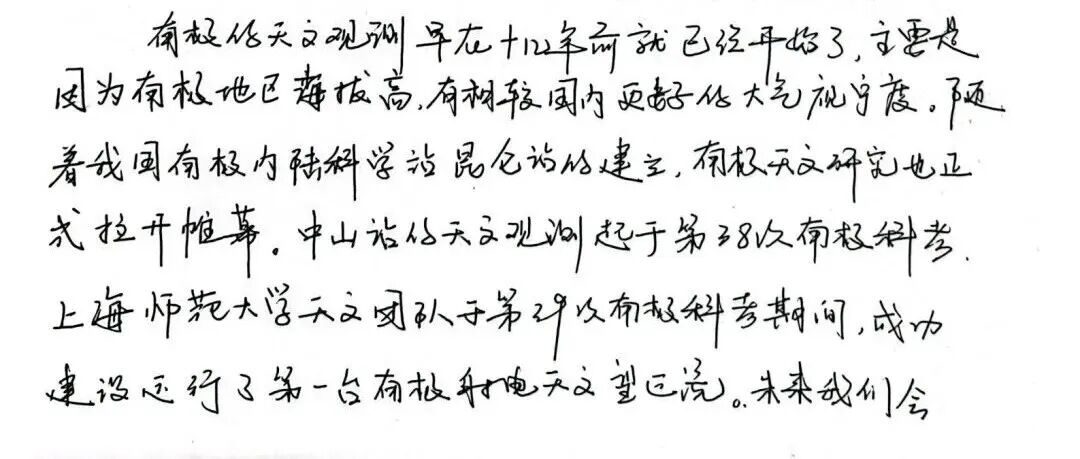 南极的天文观测早在十几年前就已经开始了,主要是
因为南极地区海拔高,有相较国内更好的大气视宁度。随
着我国南极内陆科学站昆仑站的建立,南极天文研究也正
式拉开帷幕。中山站的天文观测起于第38次南极科考,
上海师范大学天文团队于第39次南极科考期间,成功
建设运行了第一台南极射电天文望远镜。未来我们会